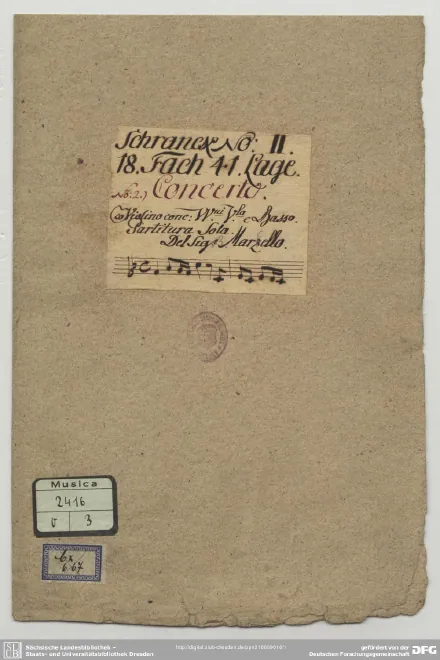 Schranck No: II.
18. Fach 41. Lage.
No: 2.) Concerto.
Co Violino conc: VVni Vla e Basso.
Partitura Sola.
Del Sig. Marzello.
Musica
2416
O 3
Mx
667
SLUB
Sächsische Landesbibliothek –
Staats- und Universitätsbibliothek Dresden
gefördert von der
Deutschen Forschungsgemeinschaft
DFG